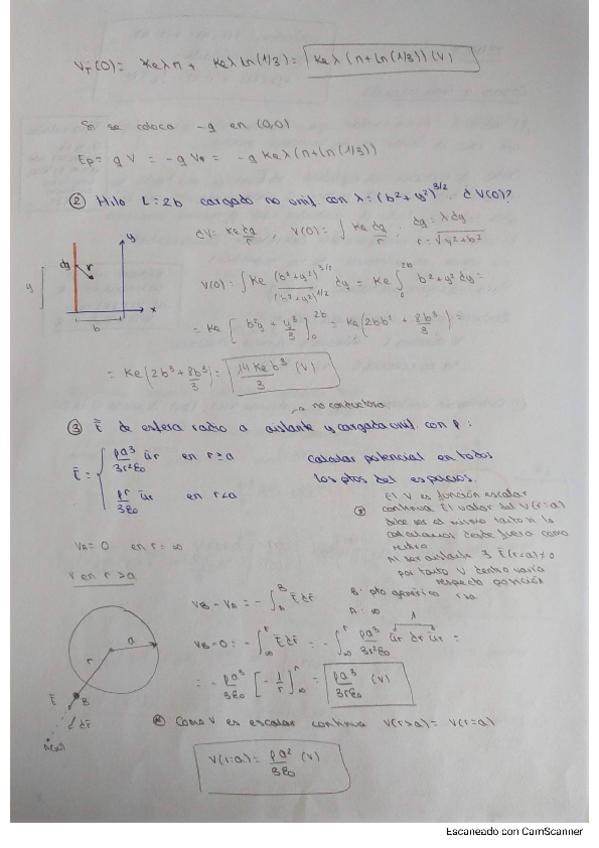 V_T(0) = Keλπ + Keλ ln(1/3) = Keλ(π + ln(1/3)) (V)
Si se coloca -q en (0,0)
Ep = qV = -qV₀ = -qKeλ(π + ln(1/3))
② Hilo L = 2b cargado no unif. con λ = (b² + y²)^3/2. ¿V(0)?
dV = Ke dq/r, V(0) = ∫ Ke dq/r ; dq = λdy
r = √(y² + b²)
y
dq
r
y
x
b
V(0) = ∫ Ke (b² + y²)^3/2 / (b² + y²)^1/2 dy = Ke ∫₀^2b b² + y² dy =
= Ke [b²y + y³/3]₀^2b = Ke(2bb² + 8b³/3) =
= Ke(2b³ + 8b³/3) = 14Keb³/3 (V)
no conductora
③ Ē de esfera radio a aislante y cargada unif. con ρ :
Ē = { ρa³/3r²ε₀ ūr en r ≥ a
ρr/3ε₀ ūr en r < a
Calcular potencial en todos
los ptos del espacio.
El V es función escalar
continua El valor del V(r=a)
debe ser el mismo tanto si lo
calculamos desde fuera como
dentro
Al ser aislante ∃ Ē(r<a) ≠ 0
por tanto V dentro varía
respecto posición
V_A = 0 en r = ∞
V en r > a
V_B - V_A = -∫_A^B Ē dr̄
B: pto genérico r>a
A: ∞
V_B - 0 = -∫_∞^r Ē dr̄ = -∫_∞^r ρa³/3r²ε₀ ūr dr ūr =
1
= -ρa³/3ε₀ [-1/r]_∞^r = ρa³/3rε₀ (V)
a
r
Ē
B
dr̄
A(∞)
Como V es escalar continua V(r>a) = V(r=a)
V(r=a) = ρa²/3ε₀ (V)
Escaneado con CamScanner